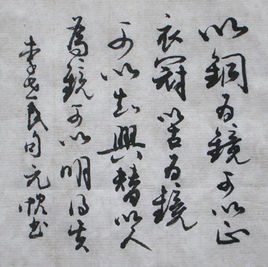 以銅為鏡可以正
衣冠以古為鏡
可以知興替以人
為鏡可以明得失
李世民句元书